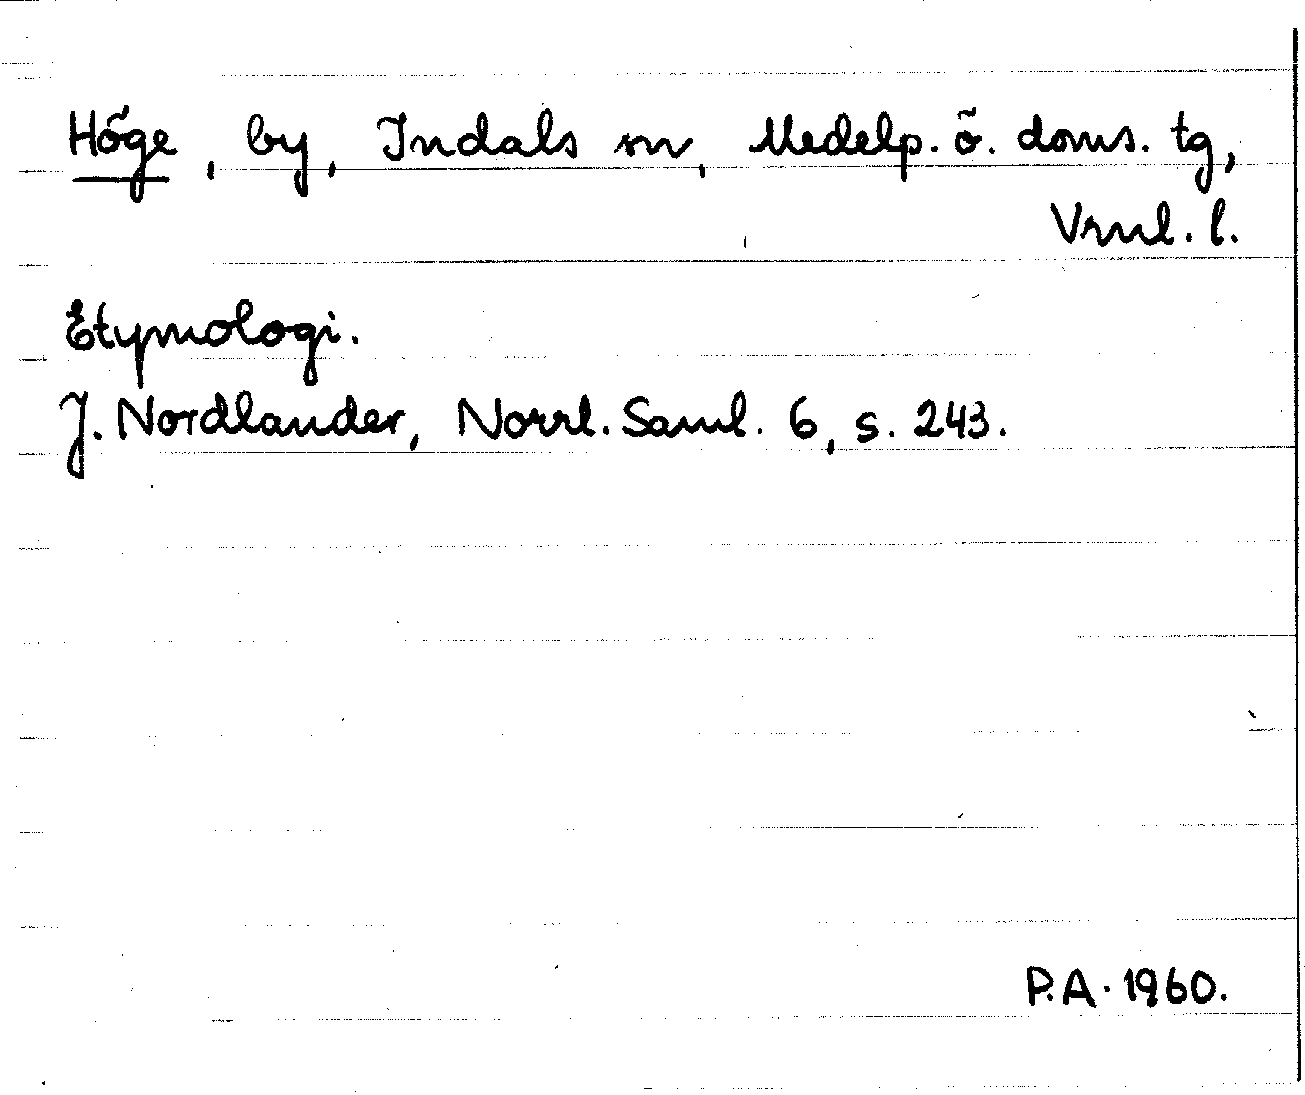 Höge, by, Indals sn, Medelp. ö. doms. tg,
Vrnl. l.
Etymologi.
J. Nordlander, Norrl. Saml. 6, s. 243.
P.A. 1960.